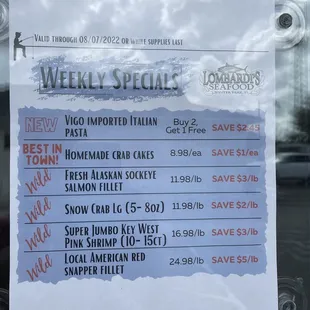 Valid through 08/07/2022 or while supplies last
Weekly Specials
LOMBARDI'S
SEAFOOD
NEW Vigo imported Italian pasta Buy 2, Get 1 Free SAVE $2.49
BEST IN TOWN! Homemade crab cakes 8.98/ea SAVE $1/ea
Wild Fresh Alaskan sockeye salmon fillet 11.98/lb SAVE $3/lb
Wild Snow Crab Lg (5- 8oz) 11.98/lb SAVE $2/lb
Wild Super Jumbo Key West Pink Shrimp (10- 15ct) 16.98/lb SAVE $3/lb
Wild Local American red snapper fillet 24.98/lb SAVE $5/lb